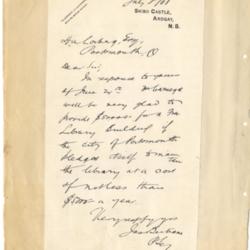 July 3/01
SKIBO CASTLE,
ARDGAY,
N.B.
Geo Esq,
Portsmouth, O
Dear Sir,
In response to yours
of June 24th Mr Carnegie
will be very glad to
provide for a Free
Library Building if
the city of Portsmouth
pledges itself to maintain
the library at a cost
of not less than
a year.
Very respectfully yrs
Jas Bertram
P Sec